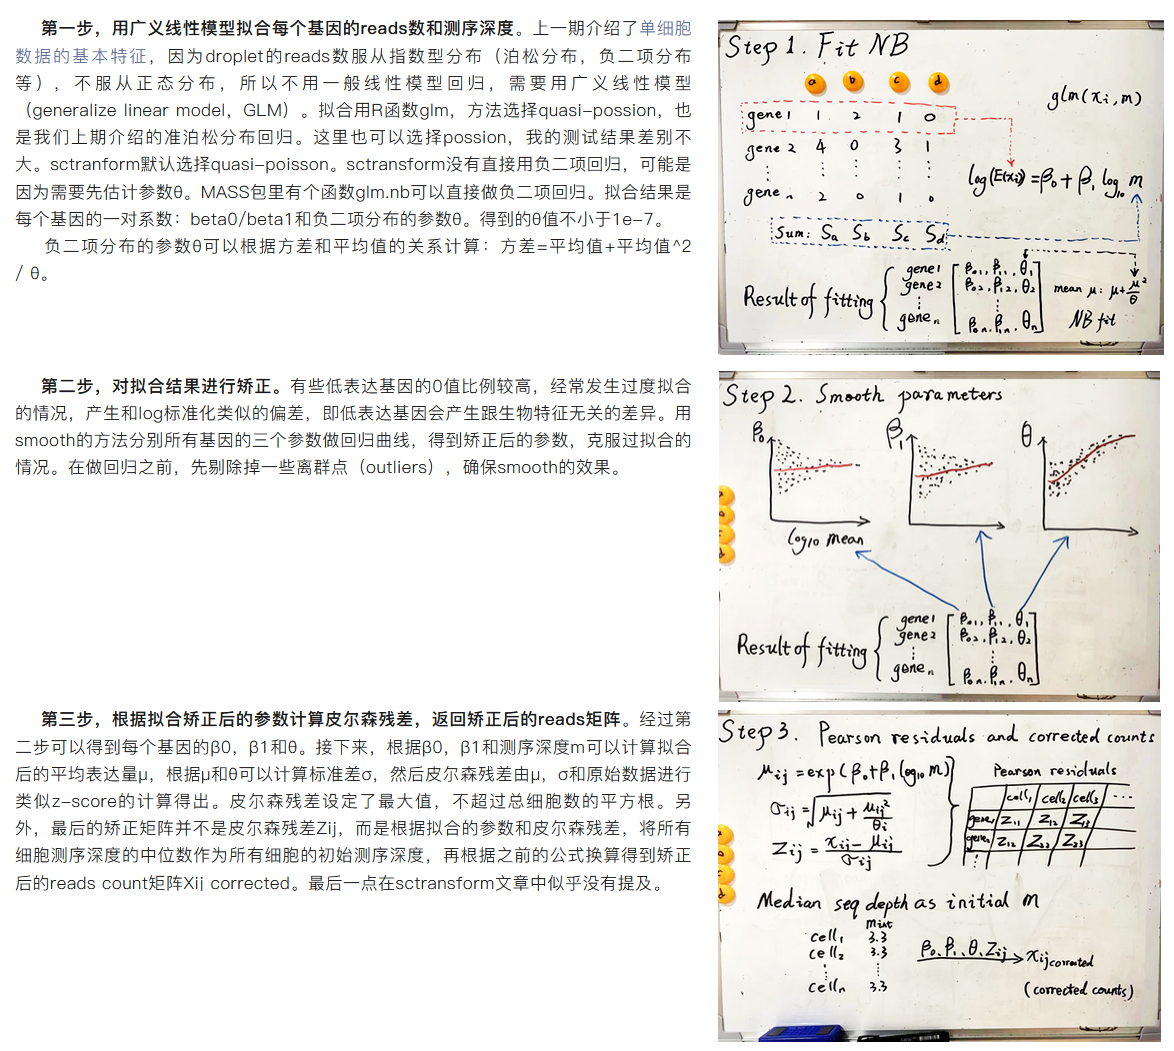 第一步，用广义线性模型拟合每个基因的reads数和测序深度。上一期介绍了单细胞
数据的基本特征，因为droplet的reads数服从指数型分布（泊松分布，负二项分布
等），不服从正态分布，所以不用一般线性模型回归，需要用广义线性模型
（generalize linear model，GLM）。拟合用R函数glm，方法选择quasi-possion，也
是我们上期介绍的准泊松分布回归。这里也可以选择possion，我的测试结果差别不
大。sctranform默认选择quasi-poisson。sctransform没有直接用负二项回归，可能是
因为需要先估计参数θ。MASS包里有个函数glm.nb可以直接做负二项回归。拟合结果是
每个基因的一对系数：beta0/beta1和负二项分布的参数θ。得到的θ值不小于1e-7。
负二项分布的参数θ可以根据方差和平均值的关系计算：方差=平均值+平均值^2
/ θ。
Step 1. Fit NB
a b c d
glm(xi, m)
gene1 1 2 1 0
gene 2 4 0 3 1
gene n 2 0 1 0
log(E(xi)) = β0 + β1 log10 m
Sum: Sa Sb Sc Sd
Result of fitting
gene1 β01, β11, θ1
gene2 β02, β12, θ2
gene n β0n, β1n, θn
mean μ: μ+μ²/θ
NB fit
第二步，对拟合结果进行矫正。有些低表达基因的0值比例较高，经常发生过度拟合
的情况，产生和log标准化类似的偏差，即低表达基因会产生跟生物特征无关的差异。用
smooth的方法分别所有基因的三个参数做回归曲线，得到矫正后的参数，克服过拟合的
情况。在做回归之前，先剔除掉一些离群点（outliers），确保smooth的效果。
Step 2. Smooth parameters
β0 β1 θ
log10 mean
Result of fitting
gene1 β01, β11, θ1
gene2 β02, β12, θ2
gene n β0n, β1n, θn
第三步，根据拟合矫正后的参数计算皮尔森残差，返回矫正后的reads矩阵。经过第
二步可以得到每个基因的β0，β1和θ。接下来，根据β0，β1和测序深度m可以计算拟合
后的平均表达量μ，根据μ和θ可以计算标准差σ，然后皮尔森残差由μ，σ和原始数据进行
类似z-score的计算得出。皮尔森残差设定了最大值，不超过总细胞数的平方根。另
外，最后的矫正矩阵并不是皮尔森残差Zij，而是根据拟合的参数和皮尔森残差，将所有
细胞测序深度的中位数作为所有细胞的初始测序深度，再根据之前的公式换算得到矫正
后的reads count矩阵Xij corrected。最后一点在sctransform文章中似乎没有提及。
Step 3. Pearson residuals and corrected counts
μij = exp(β0+β1 log10 m)
σij = √(μij + μij²/θi)
Zij = (xij - μij)/σij
Pearson residuals
cell1 cell2 cell3 ...
gene1 Z11 Z12 Z13
gene2 Z12 Z22 Z23
Median seq depth as initial m
mint
cell1 3.3
cell2 3.3
celln 3.3
β0, β1, θ, Zij → xij corrected
(corrected counts)